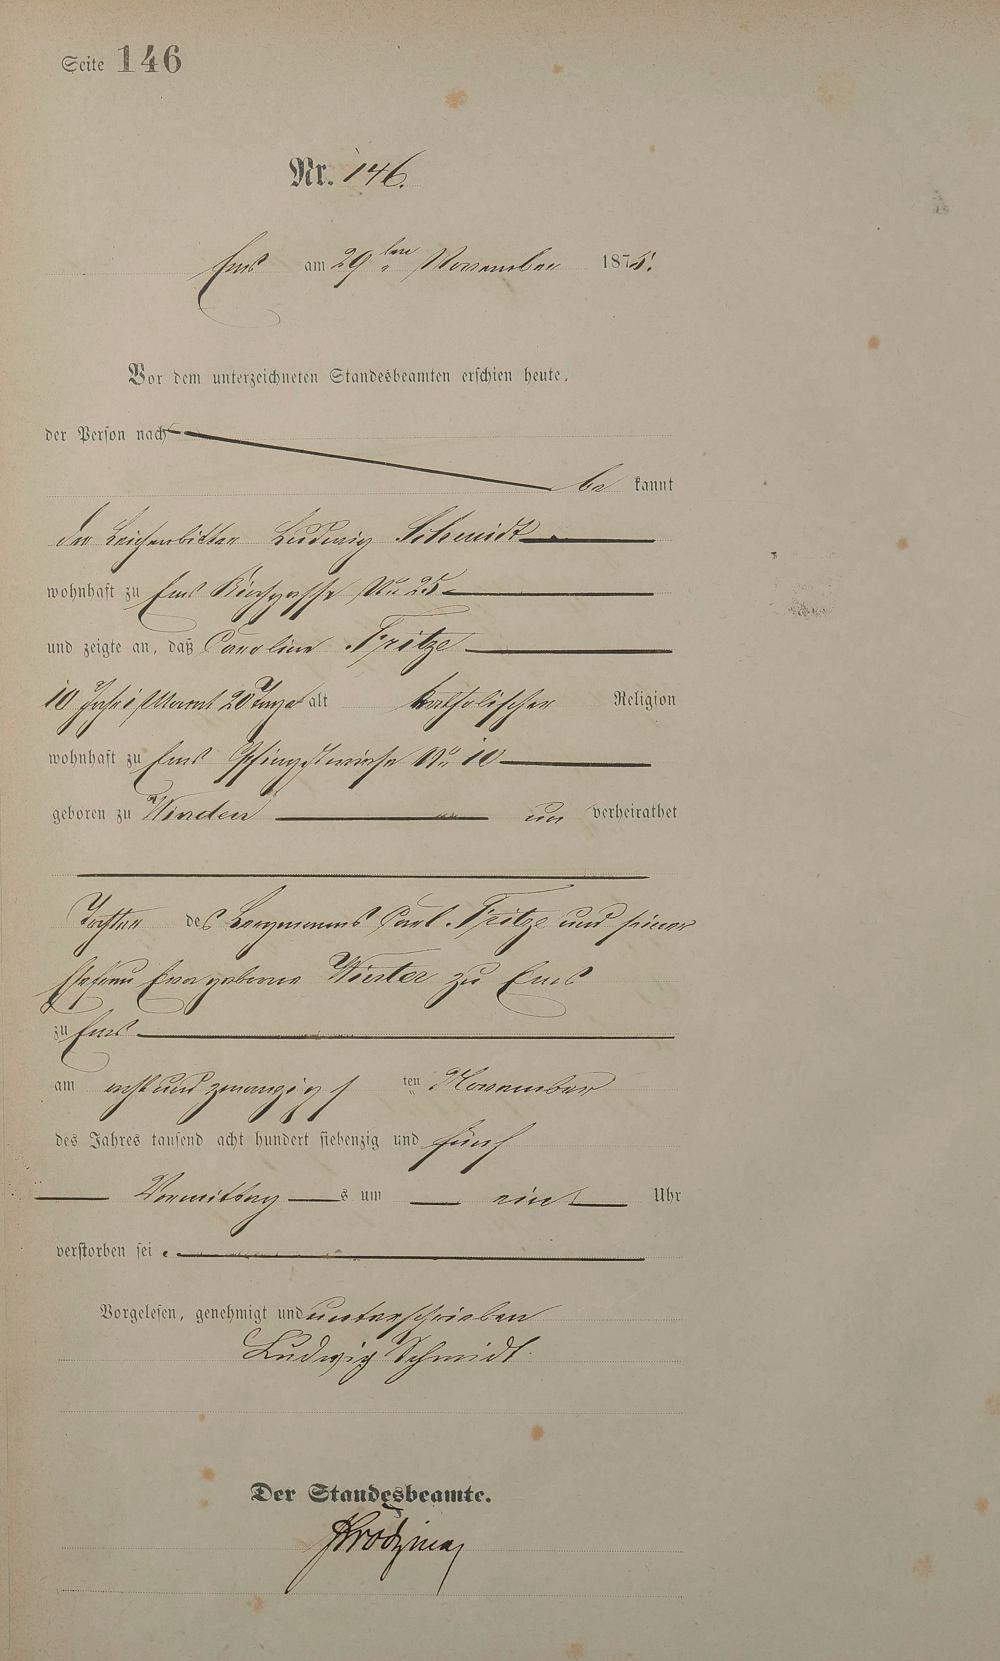 Seite 146
Nr. 146.
Ems am 29ten November 1875.
Vor dem unterzeichneten Standesbeamten erschien heute,
der Person nach
be kannt
der Leichenbitter Ludwig Schmidt
wohnhaft zu Ems Kirchgasse Nr 25
und zeigte an, daß Caroline Fritze
10 Jahr 1 Monat 20 Tage alt katholischer Religion
wohnhaft zu Ems Pfingstwiese Nr. 10
geboren zu Winden un verheirathet
Tochter des Bergmanns Carl Fritze und seiner
Ehefrau Eva geborne Wirter zu Ems
zu Ems
am acht und zwanzigs ten November
des Jahres tausend acht hundert siebenzig und fünf
Vormittag s um ein Uhr
verstorben sei.
Vorgelesen, genehmigt und unterschrieben
Ludwig Schmidt.
Der Standesbeamte.